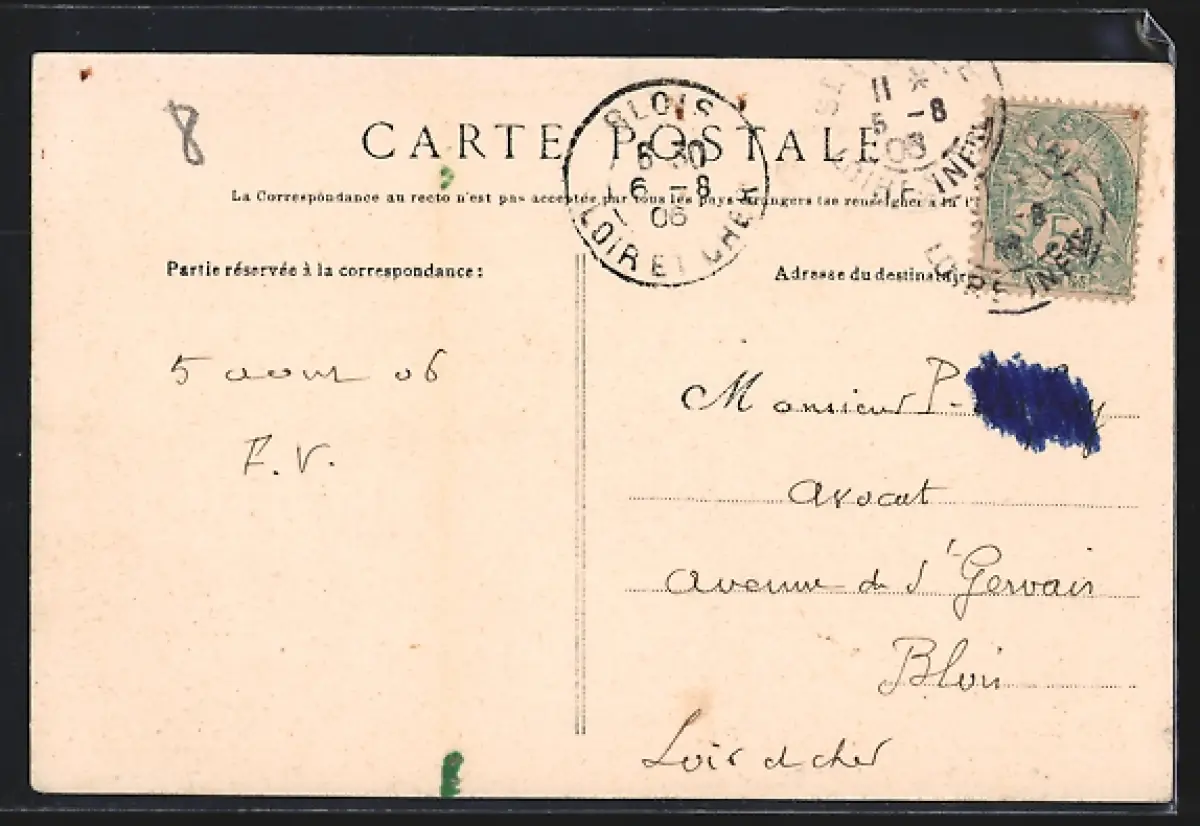 8
CARTE POSTALE
La Correspondance au recto n'est pas acceptée par tous les pays étrangers (se renseigner à la
BLOIS
5 30
6 -8
06
LOIR ET CHER
11 *
5 -8
06
LOIRE INFRE
5
LOIRE INFRE
Partie réservée à la correspondance:
Adresse du destinataire
5 aout 06
F. V.
Monsieur P.
avocat
avenue de St Gervais
Blois
Loir et cher